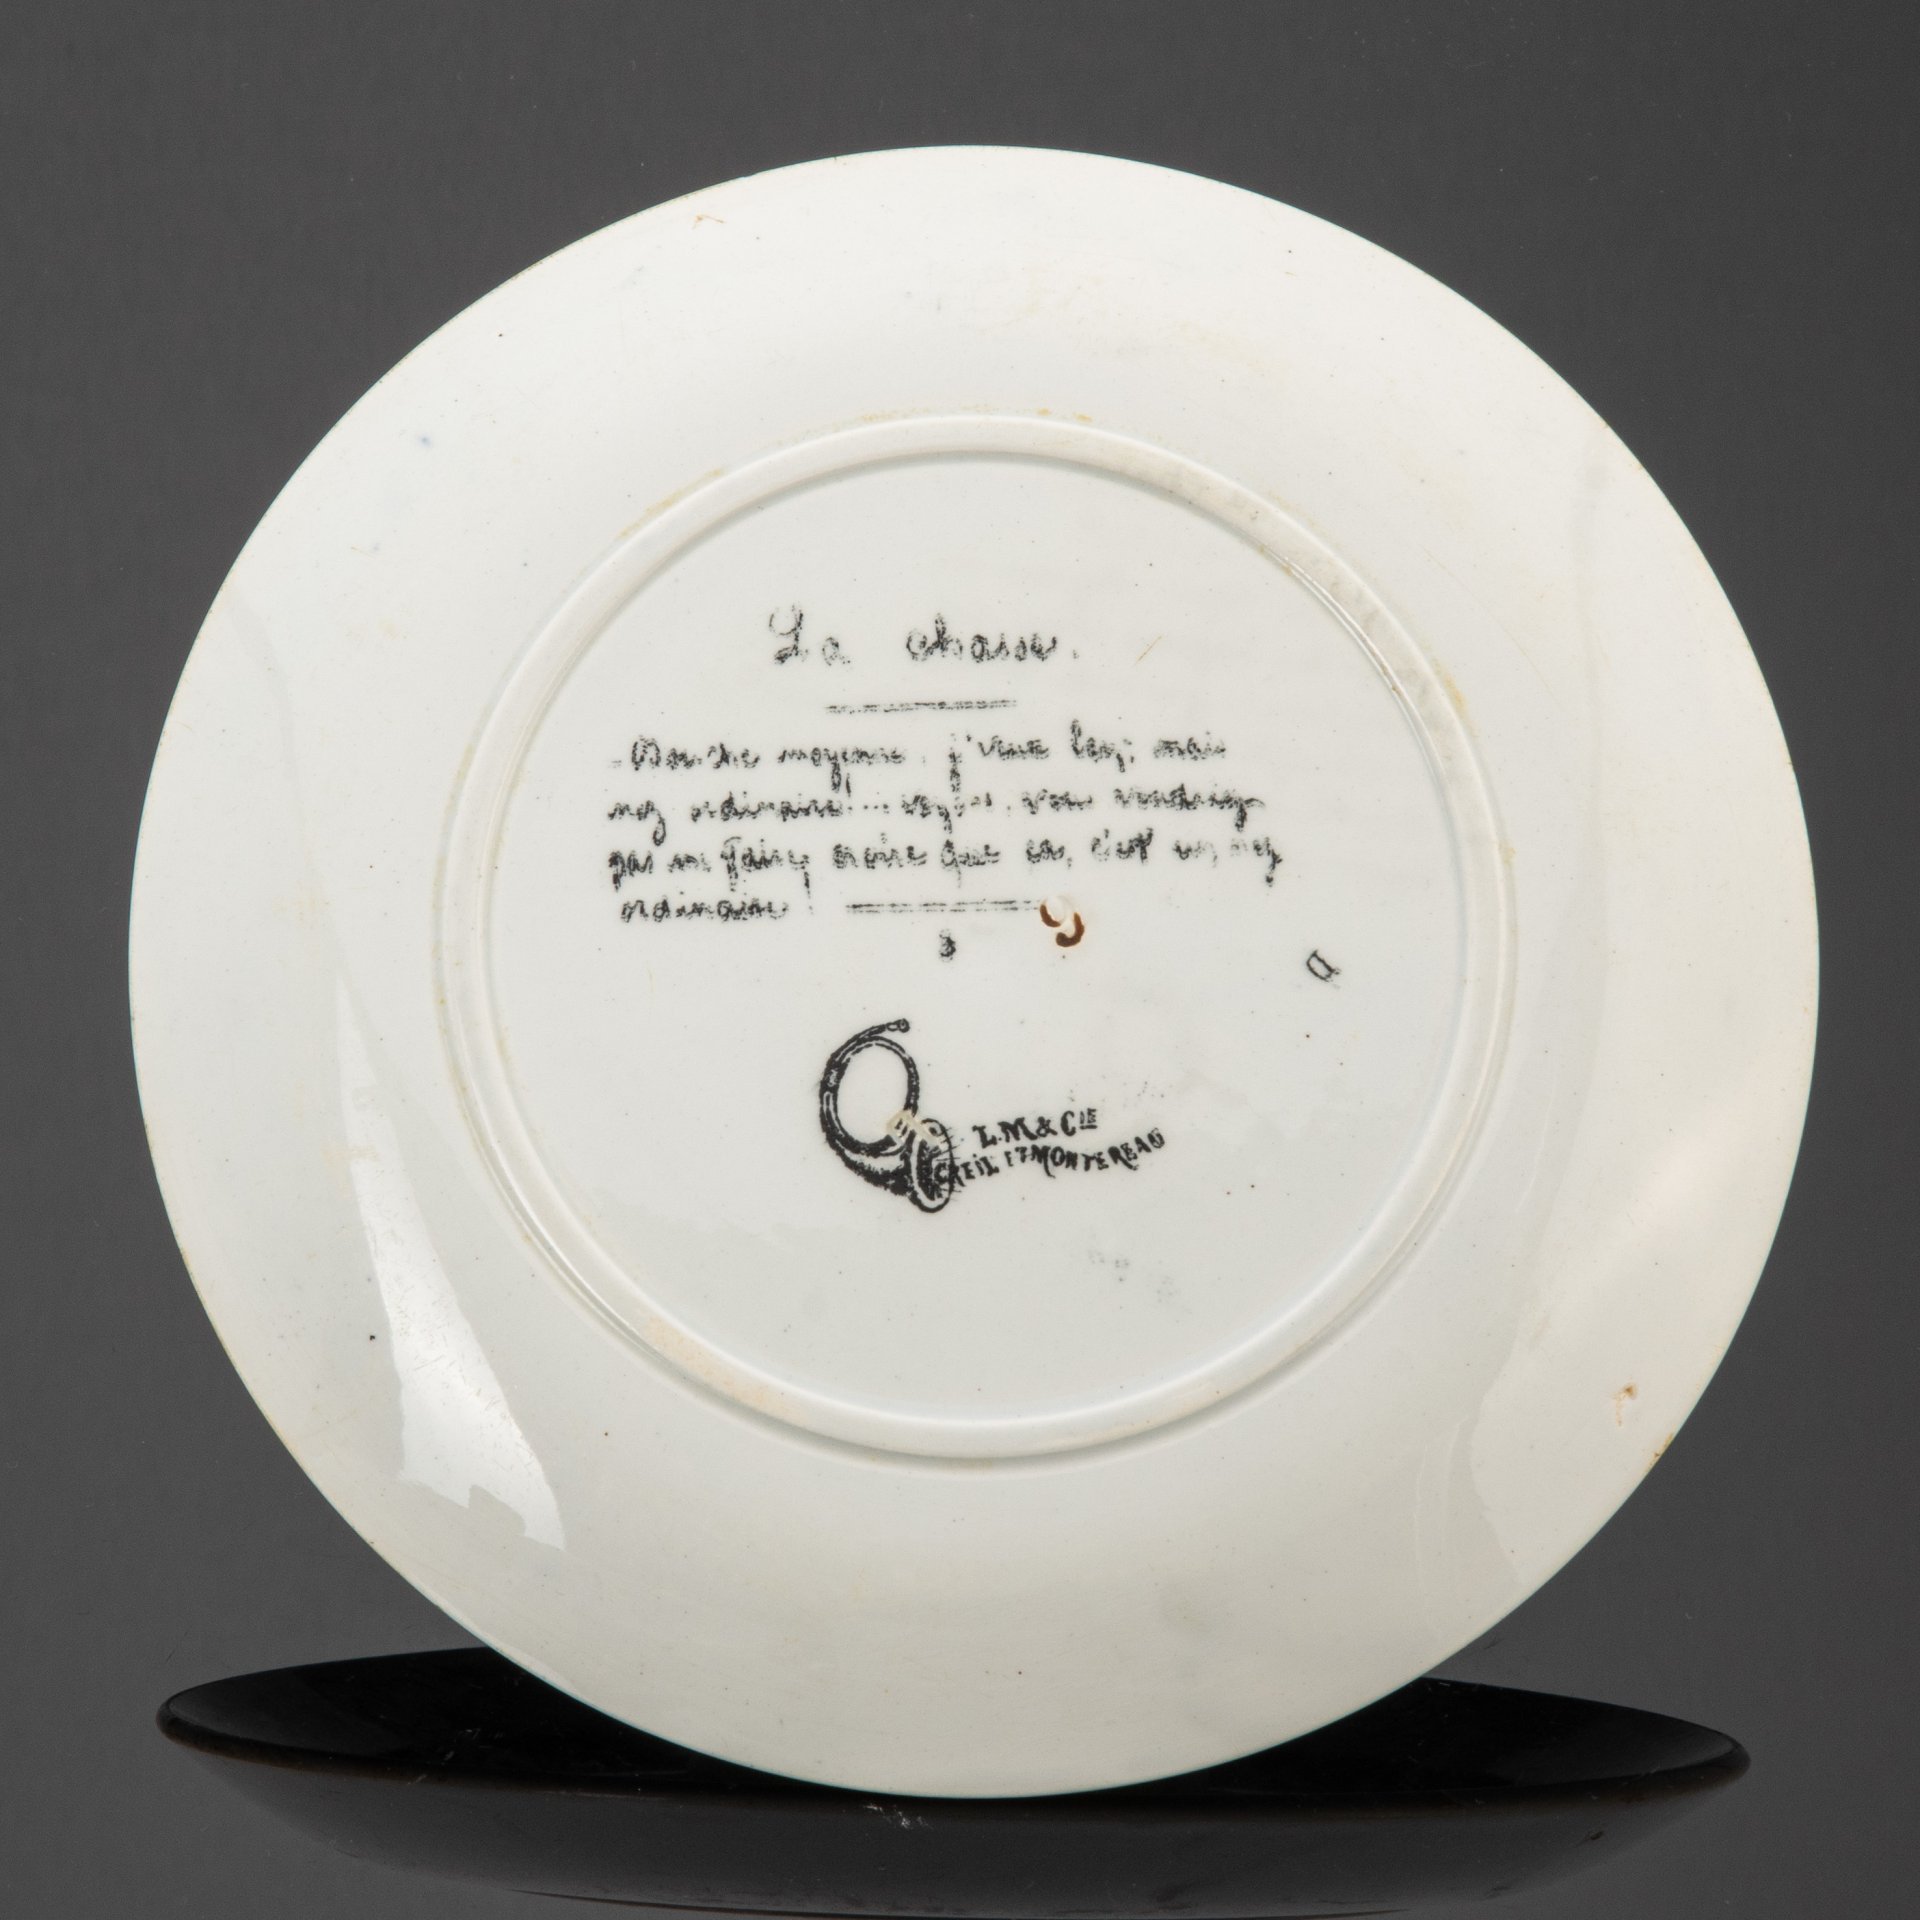 La chasse.
- Bouche moyenne, j'veux bien; mais
nez ordinaire!... voyons, vous voudriez
pas me faire croire que ça, c'est un nez
ordinaire!
8
9
D
L.M & CIE
CREIL ET MONTEREAU